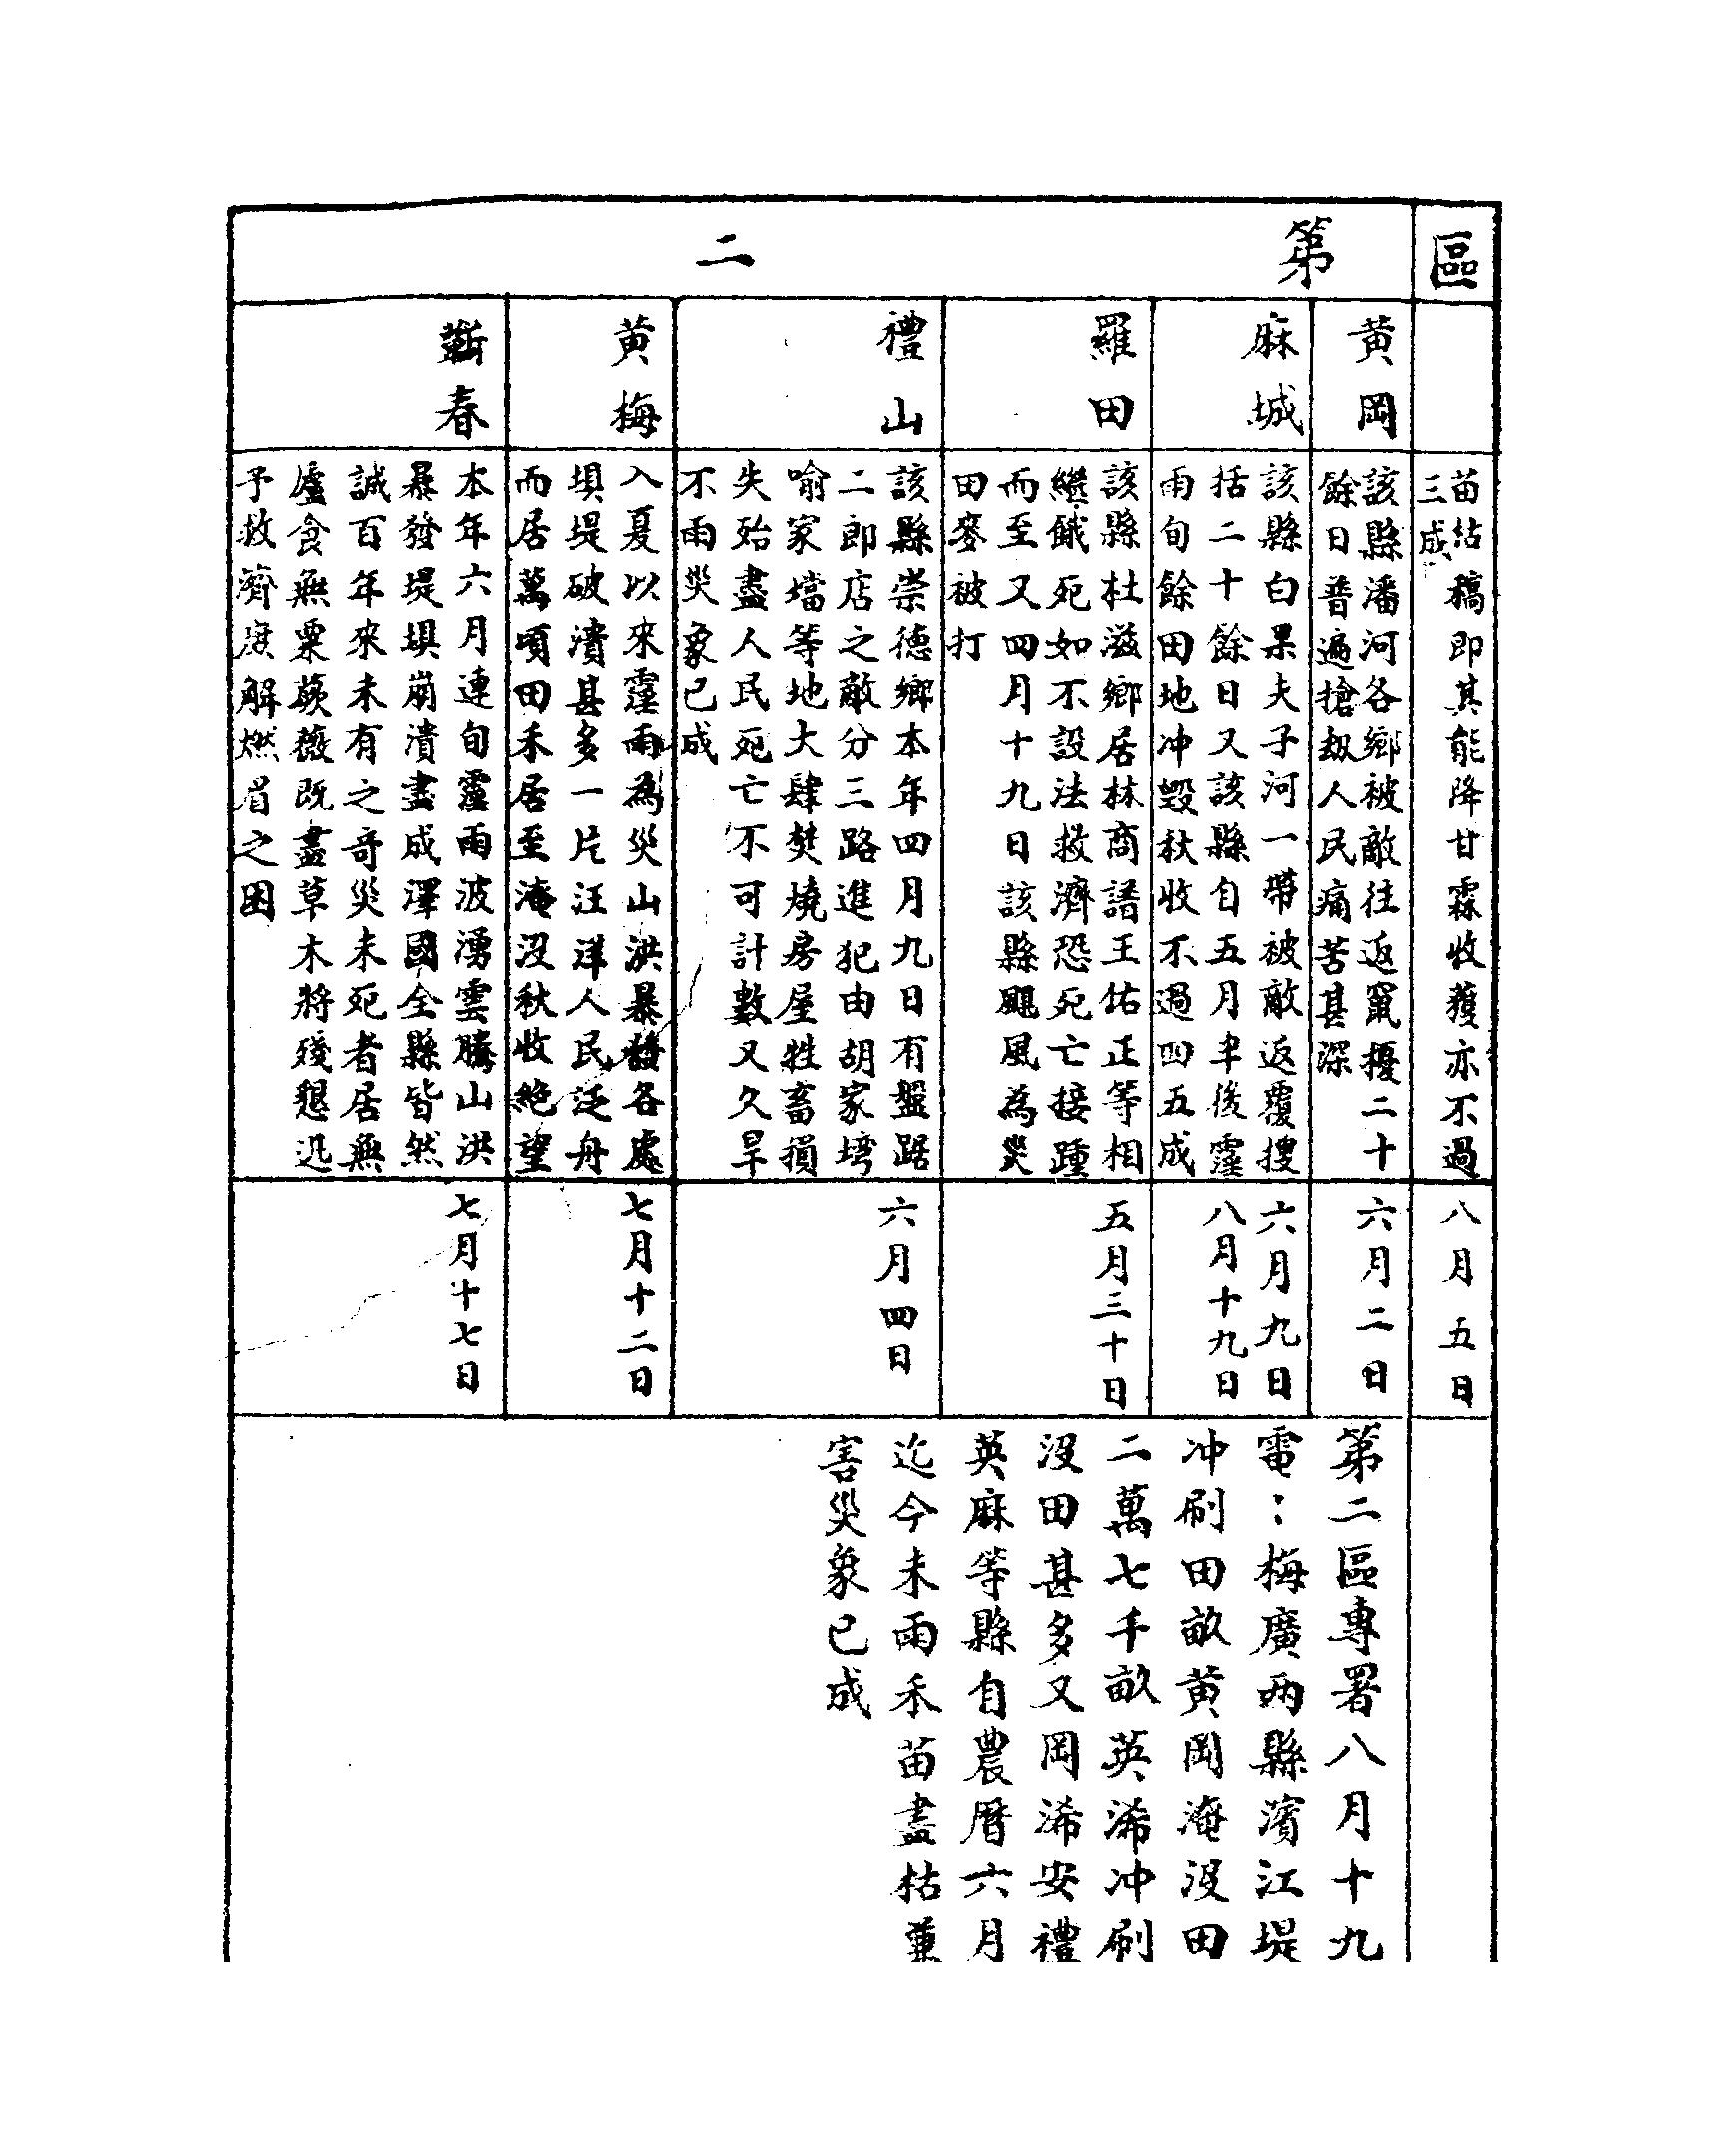 區
苗枯槁即其能降甘霖收獲亦不過
三成
八月五日
第二
黃岡
該縣潘河各鄉被敵往返竄擾二十
餘日普遍搶刼人民痛苦甚深
六月二日
麻城
該縣白果夫子河一帶被敵返覆搜
括二十餘日又該縣自五月半後霪
雨旬餘田地冲毀秋收不過四五成
六月九日
八月十九日
羅田
該縣杜滋鄉居林商諸王佑正等相
繼餓死如不設法救濟恐死亡接踵
而至又四月十九日該縣颶風為災
田麥被打
五月三十日
禮山
該縣崇德鄉本年四月九日有盤踞
二郎店之敵分三路進犯由胡家塆
喻家壋等地大肆焚燒房屋牲畜損
失殆盡人民死亡不可計數又久旱
不雨災象已成
六月四日
黃梅
入夏以來霪雨為災山洪暴發各處
垻堤破潰甚多一片汪洋人民泛舟
而居萬頃田禾居至淹沒秋收絶望
七月十二日
蘄春
本年六月連旬霪雨波湧雲騰山洪
暴發堤垻崩潰盡成澤國全縣皆然
誠百年來未有之奇災未死者居無
廬食無粟蕨薇既盡草木將殘懇迅
予救濟庶解燃眉之困
七月十七日
第二區專署八月十九
電：梅廣两縣濱江堤
冲刷田畝黃岡淹沒田
二萬七千畝英浠冲刷
沒田甚多又岡浠安禮
英麻等縣自農曆六月
迄今未雨禾苗盡枯蕫
害災象已成